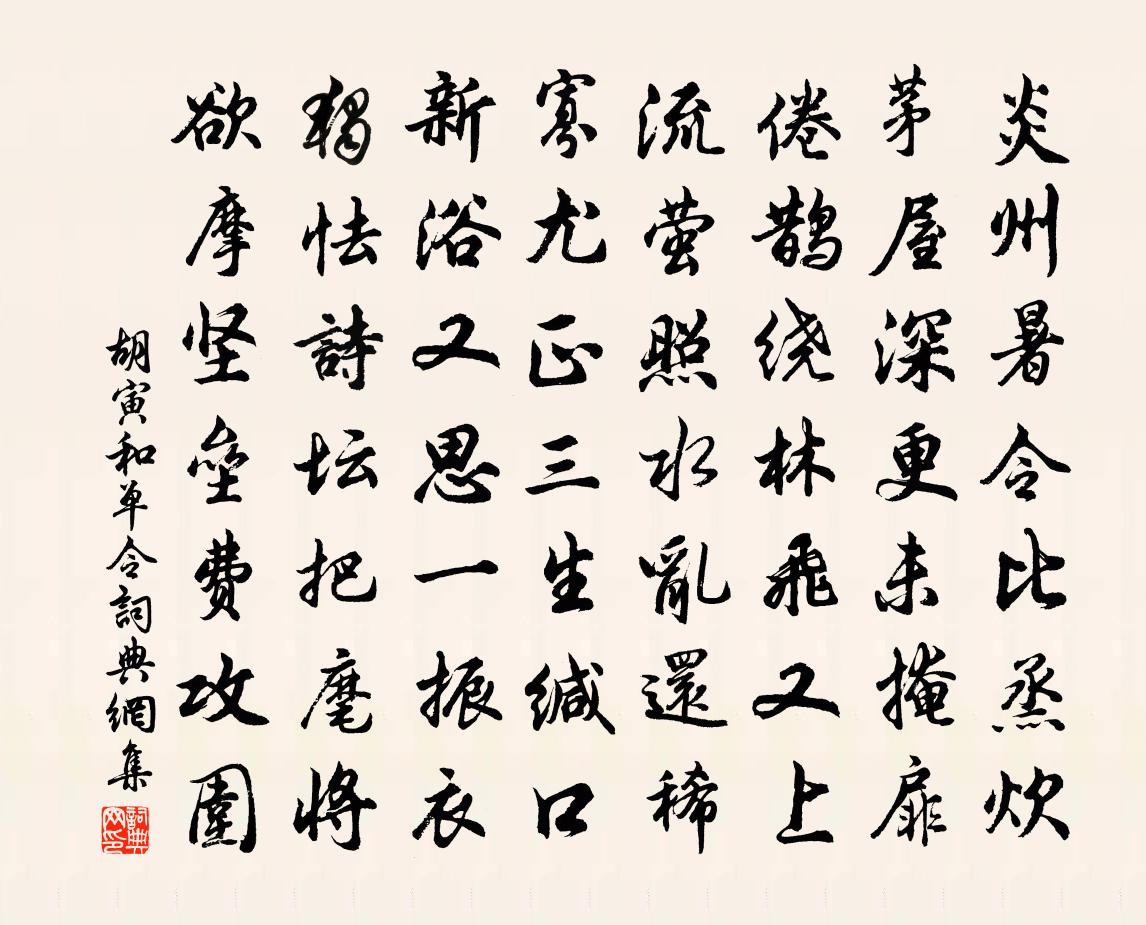 炎州暑令比蒸炊
茅屋深更未掩扉
倦鹊绕林飛又上
流萤照水亂還稀
寡尤正三生缄口
新浴又思一振衣
独怯詩坛把麾将
欲摩坚壘費攻圍
胡寅和单令詞典網集
詞典網印